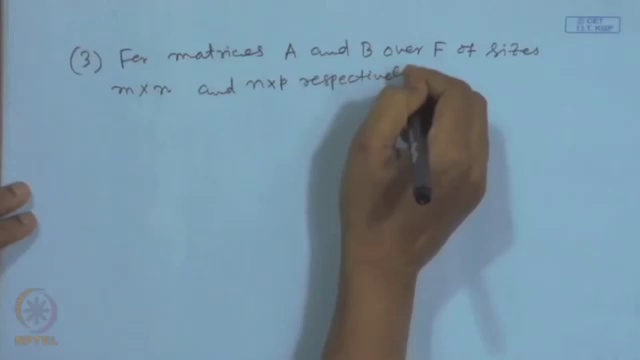 © CET
I.I.T. KGP
(3) For matrices A and B over F of sizes
m×n and n×p respectively
NPTEL